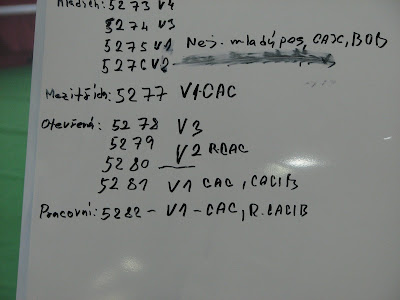 Mladých: 5273 V4
5274 V3
5275 V1 Nej. mladý pes, CAJC, BOB
5276 V2
Mezitříd: 5277 V1 CAC
Otevřená: 5278 V3
5279 V2 R.CAC
5280 —
5281 V1 CAC, CACIB
Pracovní: 5282 - V1 - CAC, R.CACIB